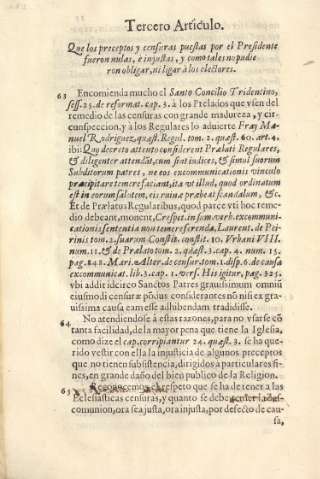 Tercero Articulo.
Que los preceptos y censuras puestas por el Presidente
fueron nulas, è injustas, y como tales no pudie
ron obligar, ni ligar à los electores.
63 Encomienda mucho el Santo Concilio Tridentino,
sess. 25. de reformat. cap. 3. à los Prelados que vsen del
remedio de las censuras con grande madureza, y cir
cunspeccion, y à los Regulares lo aduierte Fray Ma
nuel Rodriguez, quæst. Regul. tom. 2. quæst. 60. art. 4.
ibi: Quo decreto attento considerent Prælati Regulares,
& diligenter attendāt, cum sint iudices, & simul suorum
Subditorum patres, ne eos excommunicationis vinculo
præcipitare temere faciant, ita vt illud, quod ordinatum
est in eorum salutem, eis ruinæ præbeat scandalum, &c.
Et de Prælatus Regularibus, quod parcè vti hoc reme
dio debeant, monent, Crespet. in sum. verb. excommuni-
cationis sententia non temere ferenda, Laurent. de Pei-
rinis tom. 2. suarum Constit. constit. 10. Vrbani VIII.
num. 11. & de Prælato tom. 2. quæst. 3. cap. 4. num. 15.
pag. 248. Mari. Alter. de censur. tom. 1. disp. 6. de causa
excommunicat. lib. 3. cap. 1. vers. His igitur, pag. 325.
vbi addit idcirco Sanctos Patres grauissimum omniū
eiusmodi censuræ pōdus considerantes nō nisi ex gra
uissima causa eam esse adhibendam tradidisse.
64 No atendiendose à estas razones, para no vsarse cō
tanta facilidad, de la mayor pena que tiene la Iglesia,
como dize el cap. corripiantur 24. quæst. 3. se ha que-
rido vestir con ella la injusticia de algunos preceptos
que no tienen subsistencia, dirigidos à particulares fi-
nes, en grande daño del bien publico de la Religion.
65 Reconocemos el respeto que se ha de tener à las
Ecclesiasticas censuras, y quanto se debe temer la des-
comunion, ora sea justa, ora injusta, por defecto de cau-
sa,